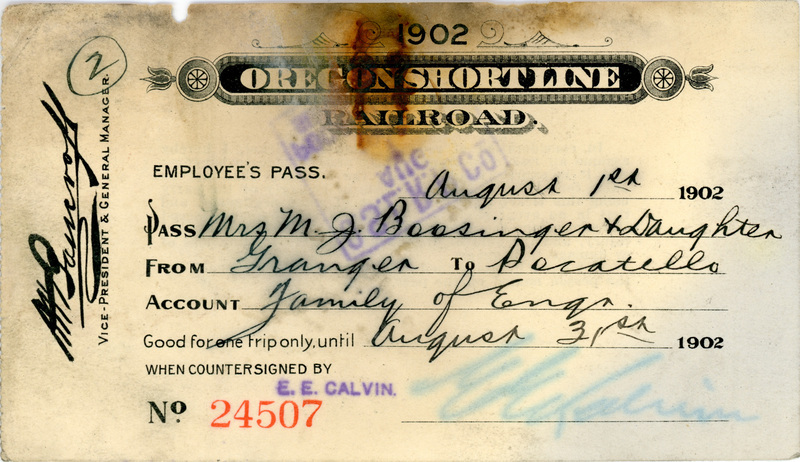 1902
OREGON SHORT LINE
RAILROAD.
2
VICE-PRESIDENT & GENERAL MANAGER.
EMPLOYEE'S PASS.
August 1st 1902
PASS Mrs M. J. Boosinger & Daughter
FROM Granger TO Pocatello
ACCOUNT Family of Engr.
Good for one trip only, until August 31st 1902
WHEN COUNTERSIGNED BY
E. E. CALVIN.
No 24507
E E Calvin